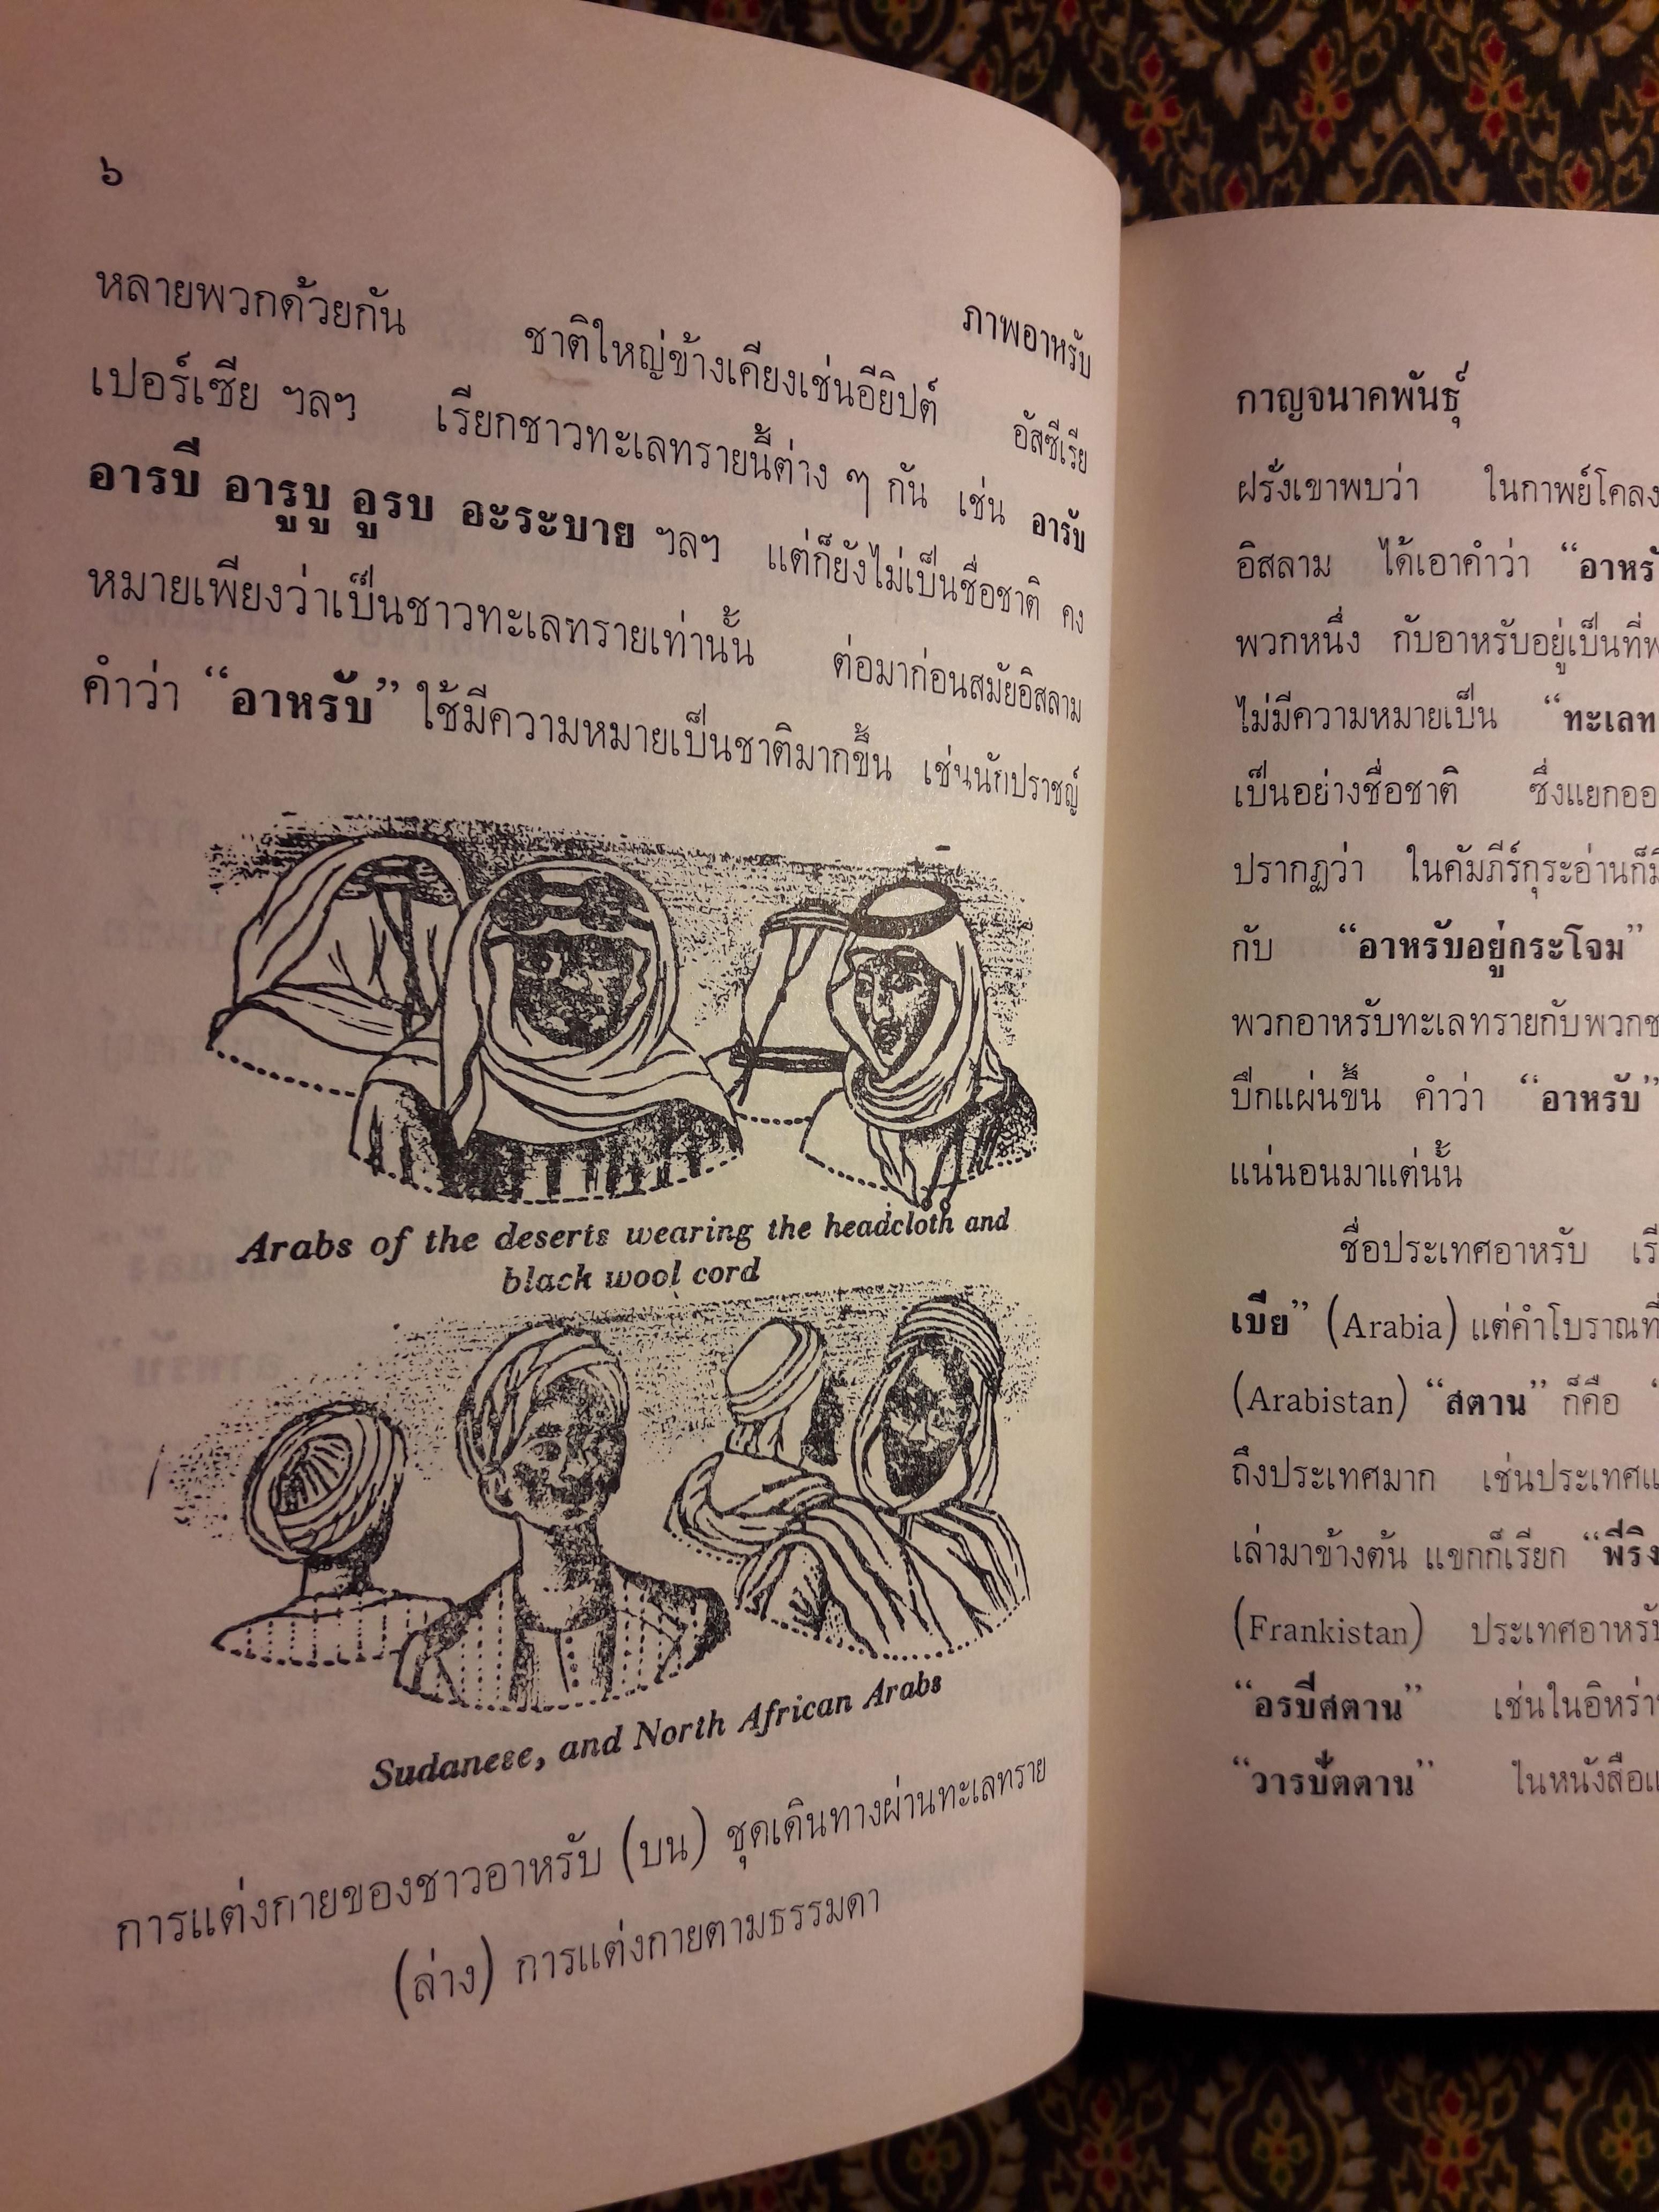 ๖
ภาพอาหรับ
หลายพวกด้วยกัน ชาติใหญ่ข้างเคียงเช่นอียิปต์ อัสซีเรีย
เปอร์เซีย ฯลฯ เรียกชาวทะเลทรายนี้ต่าง ๆ กัน เช่น อารับ
อารบี อารูบู อูรบ อะระบาย ฯลฯ แต่ก็ยังไม่เป็นชื่อชาติ คง
หมายเพียงว่าเป็นชาวทะเลทรายเท่านั้น ต่อมาก่อนสมัยอิสลาม
คำว่า “อาหรับ” ใช้มีความหมายเป็นชาติมากขึ้น เช่นนักปราชญ์
Arabs of the deserts wearing the headcloth and
black wool cord
Sudanese, and North African Arabs
การแต่งกายของชาวอาหรับ (บน) ชุดเดินทางผ่านทะเลทราย
(ล่าง) การแต่งกายตามธรรมดา
กาญจนาคพันธุ์
ฝรั่งเขาพบว่า ในกาพย์โคลง
อิสลาม ได้เอาคำว่า “อาหรั
พวกหนึ่ง กับอาหรับอยู่เป็นที่
ไม่มีความหมายเป็น “ทะเลท
เป็นอย่างชื่อชาติ ซึ่งแยกออ
ปรากฏว่า ในคัมภีร์กุระอ่านก็
กับ “อาหรับอยู่กระโจม”
พวกอาหรับทะเลทรายกับพวกช
ปึกแผ่นขึ้น คำว่า “อาหรับ”
แน่นอนมาแต่นั้น
ชื่อประเทศอาหรับ เรี
เบีย” (Arabia) แต่คำโบราณที่
(Arabistan) “สตาน” ก็คือ “
ถึงประเทศมาก เช่นประเทศแ
เล่ามาข้างต้น แขกก็เรียก “พีริง
(Frankistan) ประเทศอาหรับ
“อรบีศตาน” เช่นในอิหร่า
“วารบัตตาน” ในหนังสือแ